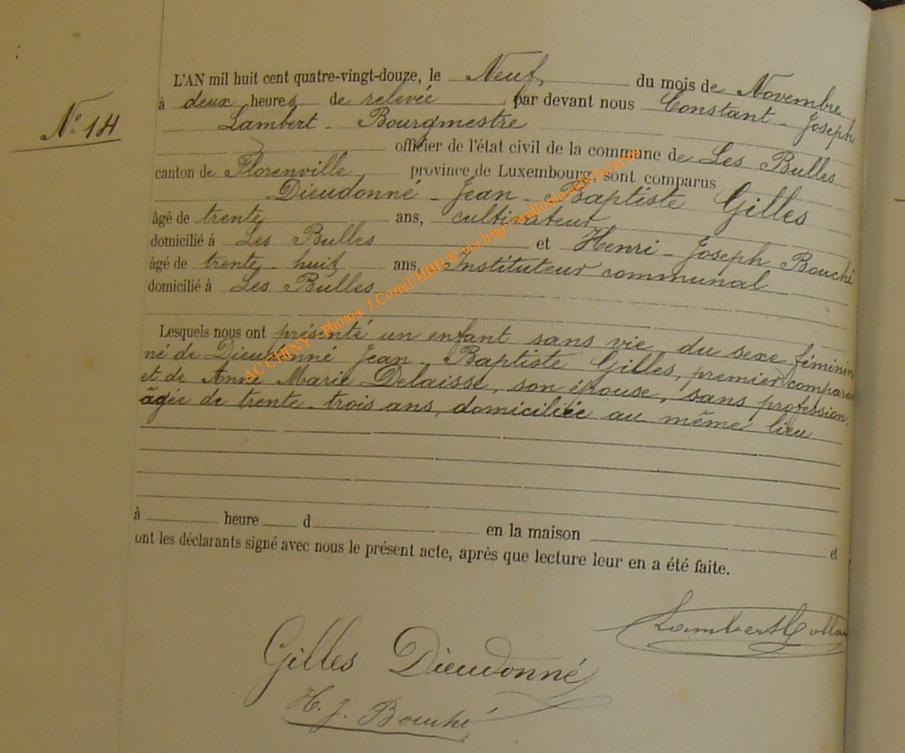 N° 14
L'AN mil huit cent quatre-vingt-douze, le Neuf du mois de Novembre
à deux heures de relevée, par devant nous Constant - Joseph
Lambert - Bourgmestre
officier de l'état civil de la commune de Les Bulles
canton de Florenville, province de Luxembourg, sont comparus
Dieudonné - Jean - Baptiste Gilles
âgé de trente ans, cultivateur
domicilié à Les Bulles et Henri - Joseph Bouché
âgé de trente - huit ans, Instituteur communal
domicilié à Les Bulles
Lesquels nous ont présenté un enfant sans vie du sexe féminin
né de Dieudonné Jean - Baptiste Gilles, premier comparant
et de Anne Marie Delaisse, son épouse, sans profession,
âgée de trente - trois ans, domiciliée au même lieu
à heure d en la maison et
ont les déclarants signé avec nous le présent acte, après que lecture leur en a été faite.
Lambert
Gilles Dieudonné
H. J. Bouché
AC CHINY - Photos: J Cornil HBH® via http